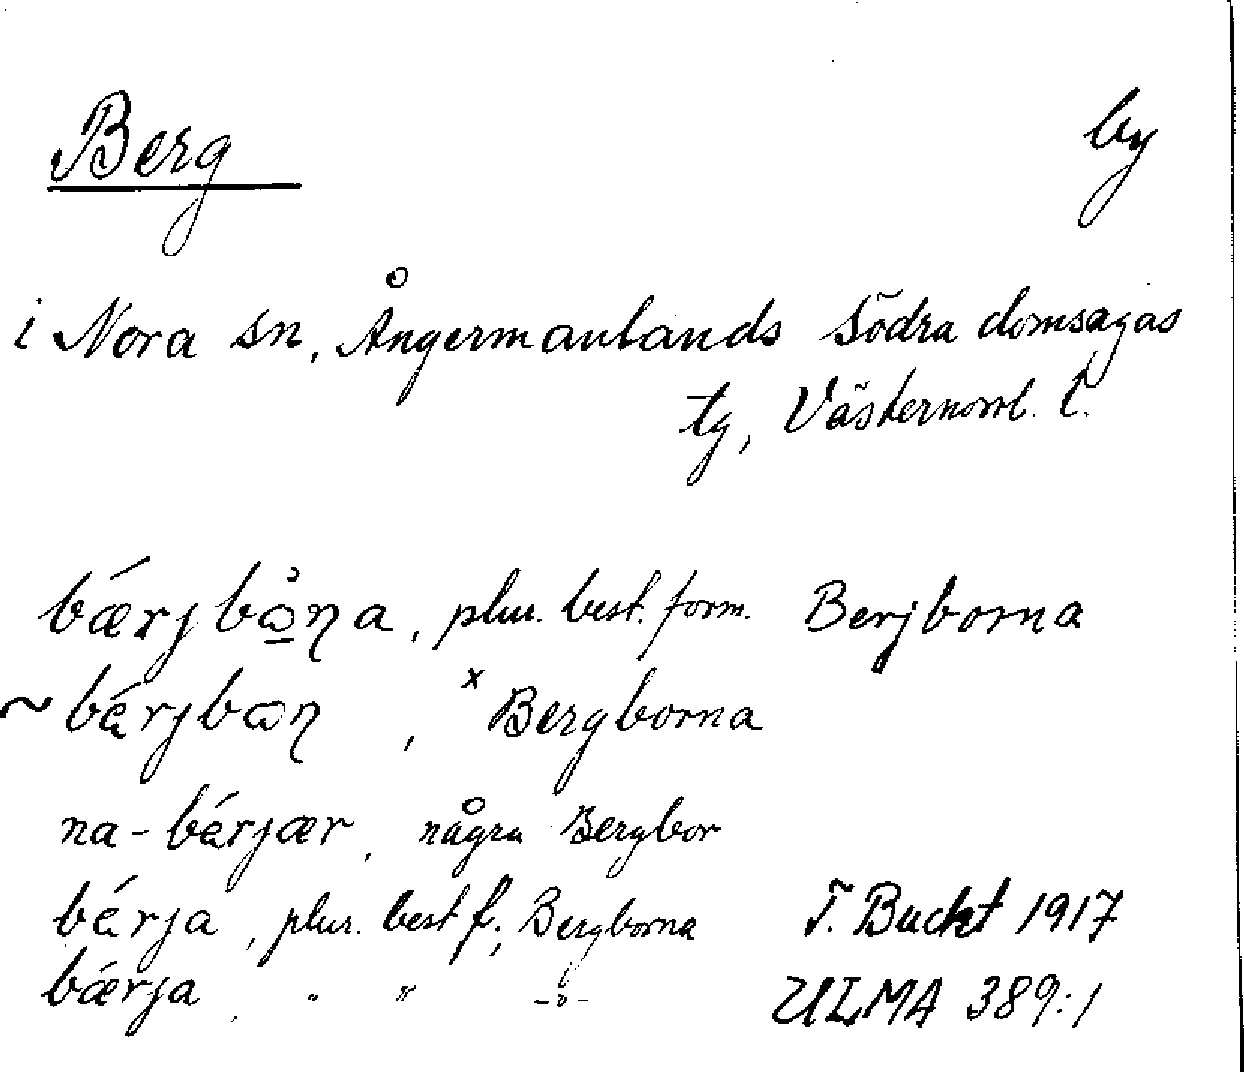 Berg by
i Nora sn, Ångermanlands södra domsagas
tg, Västernorrl. l.
bǽrjbω̲̊ŋa, plur. best. form. Berjborna
~ bérjbωŋ, ˣBergborna
na-bérjær, några Bergbor
bérja, plur. best f., Bergborna T. Bucht 1917
bǽrja, " " -"- ULMA 389:1